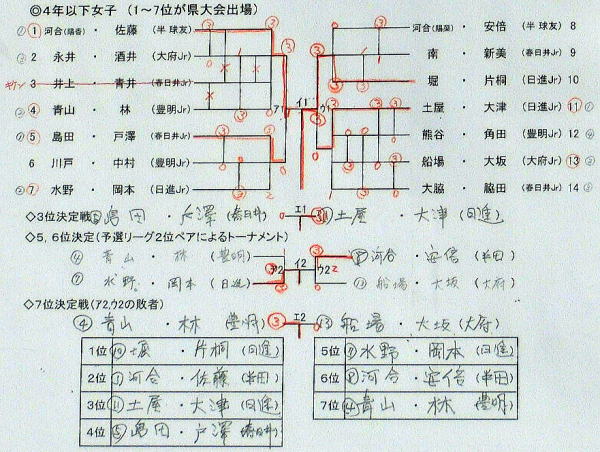 ◎4年以下女子 (1～7位が県大会出場)
1 河合(陽香) ・ 佐藤 (半球友)
2 永井 ・ 酒井 (大府Jr)
3 井上 ・ 青井 (春日井Jr)
4 青山 ・ 林 (豊明Jr)
5 島田 ・ 戸澤 (春日井Jr)
6 川戸 ・ 中村 (豊明Jr)
7 水野 ・ 岡本 (日進Jr)
河合(陽菜) ・ 安倍 (半球友) 8
南 ・ 新美 (春日井Jr) 9
堀 ・ 片桐 (日進Jr) 10
土屋 ・ 大津 (日進Jr) 11
熊谷 ・ 角田 (豊明Jr) 12
船場 ・ 大坂 (大府Jr) 13
大脇 ・ 脇田 (春日井Jr) 14
ア1 イ1 ウ1
◇3位決定戦 ⑤島田 ・ 戸澤 (春日井) エ1 ⑪土屋 ・ 大津 (日進)
◇5,6位決定(予選リーグ2位ペアによるトーナメント)
④ 青山 ・ 林 (豊明) ⑧河合 ・ 安倍 (半田)
ア2 イ2 ウ2
⑦ 水野 ・ 岡本 (日進) ⑬ 船場 ・ 大坂 (大府)
◇7位決定戦(ア2,ウ2の敗者)
④ 青山 ・ 林 (豊明) ③ エ2 0 ⑬ 船場 ・ 大坂 (大府)
1位 ⑩堀 ・ 片桐 (日進)
2位 ①河合 ・ 佐藤 (半田)
3位 ⑪土屋 ・ 大津 (日進)
4位 ⑤島田 ・ 戸澤 (春日井)
5位 ⑦水野 ・ 岡本 (日進)
6位 ⑧河合 ・ 安倍 (半田)
7位 ④青山 ・ 林 (豊明)